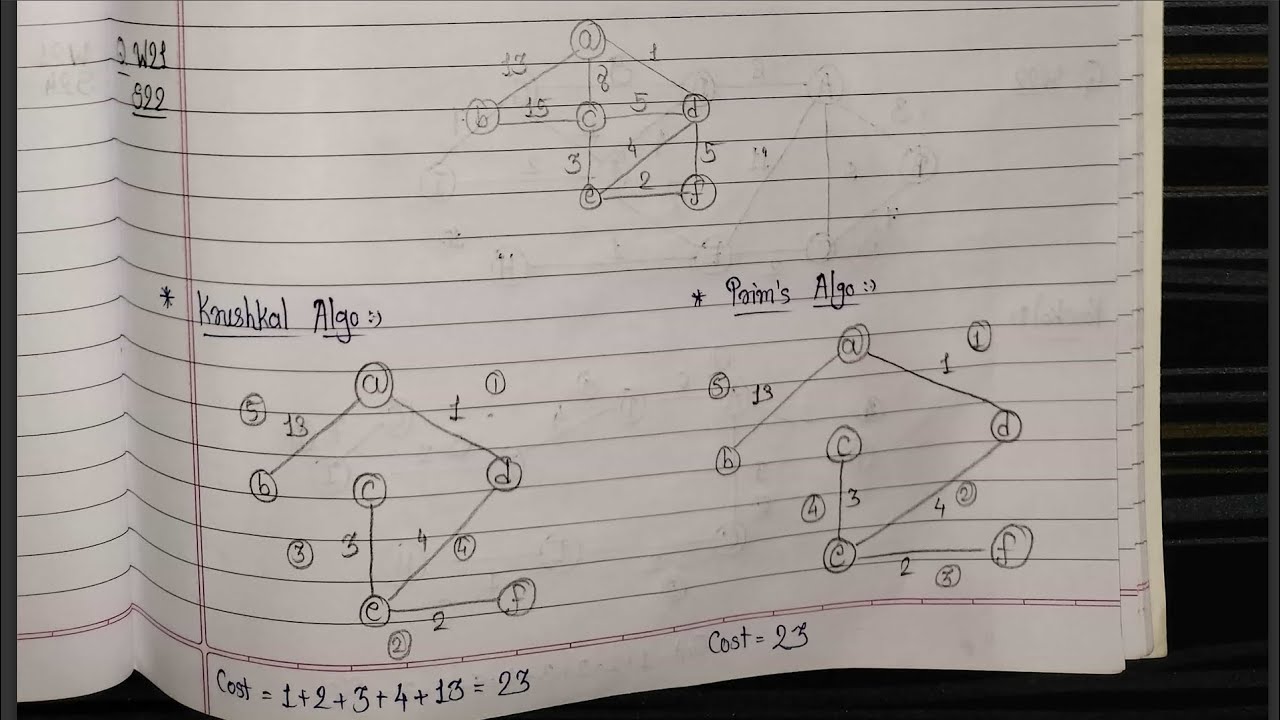 Q W21
S22
a
13 8 1
b 15 c 5 d
3 4 5
e 2 f
* Krushkal Algo:-)
* Prim's Algo:-)
a ①
⑤ 13 1
b c d
③ 3 4 ④
e 2 f
②
Cost = 1+2+3+4+13 = 23
a 1 ①
⑤ 13
b c d
④ 3 4 ②
e 2 f
③
Cost = 23